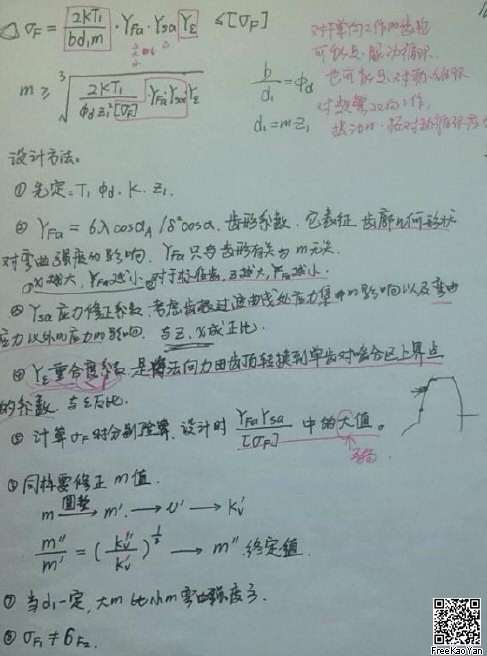 σF = 2KT₁/(bd₁m) · YFa · Ysa Yε ≤ [σF]
m ≥ ³√(2KT₁/(φd z₁² [σF]) YFa Ysa Yε)
b/d₁ = φd
d₁ = mz₁
对单向工作的齿轮
可能是脉动循环
也可能是对称循环
设计方法。
① 先定 T₁ φd . K . z₁.
② YFa = 6λcosαA /δ²cosα. 齿形系数. 它表征 齿廓几何形状
对弯曲强度的影响. YFa 只与齿形有关与 m 无关.
x越大, YFa越小. 对于标准齿, z越大, YFa越小.
③ Ysa 应力修正系数, 考虑齿根过渡曲线处应力集中的影响以及弯曲
应力以外的应力的影响. 与 z、x 成正比.
④ Yε 重合度系数 是将法向力由齿顶转换到单齿对啮合区上界点
的系数. 与 ε 反比.
⑤ 计算 σF 时分别验算. 设计时 YFa Ysa/[σF] 中的大值。
⑥ 同样要修正 m 值.
m 圆整→ m' → v' → Kv'
m''/m' = (Kv''/Kv')^(1/3) → m'' 终定值.
⑦ 当 d₁一定, 大 m 比小 m 弯曲强度高.
⑧ σF₁ ≠ σF₂.
FreeKaoYan